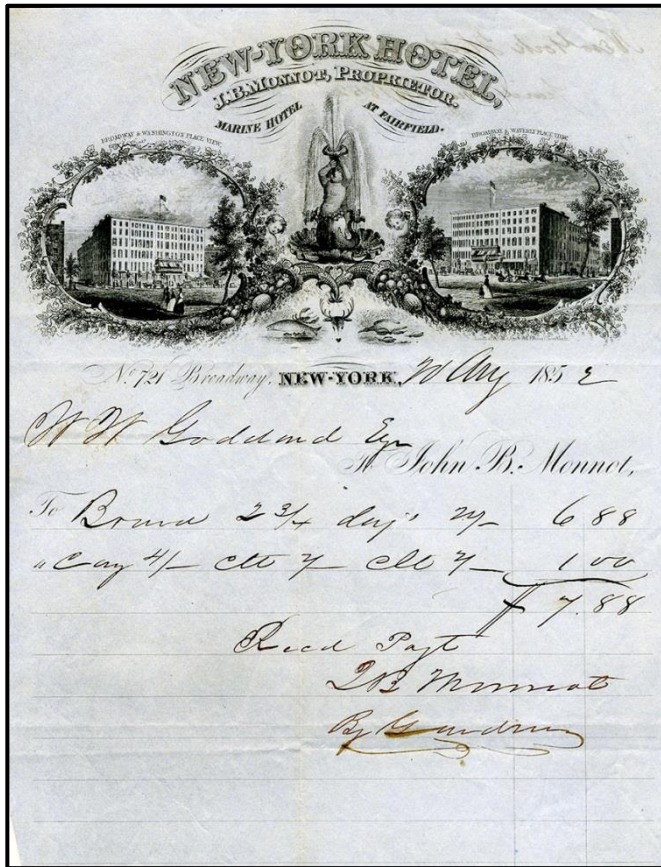 NEW-YORK HOTEL,
J.B. MONNOT, PROPRIETOR.
MARINE HOTEL AT FAIRFIELD.
BROADWAY & WASHINGTON PLACE VIEW.
BROADWAY & WAVERLY PLACE VIEW.
No. 721 Broadway. NEW-YORK, Aug 1852
W W Goddard Esq
To John B. Monnot,
To Board 2 3/4 days 6 88
" 4/- 1 00
$ 7.88
Recd Payt
JB Monnot
By